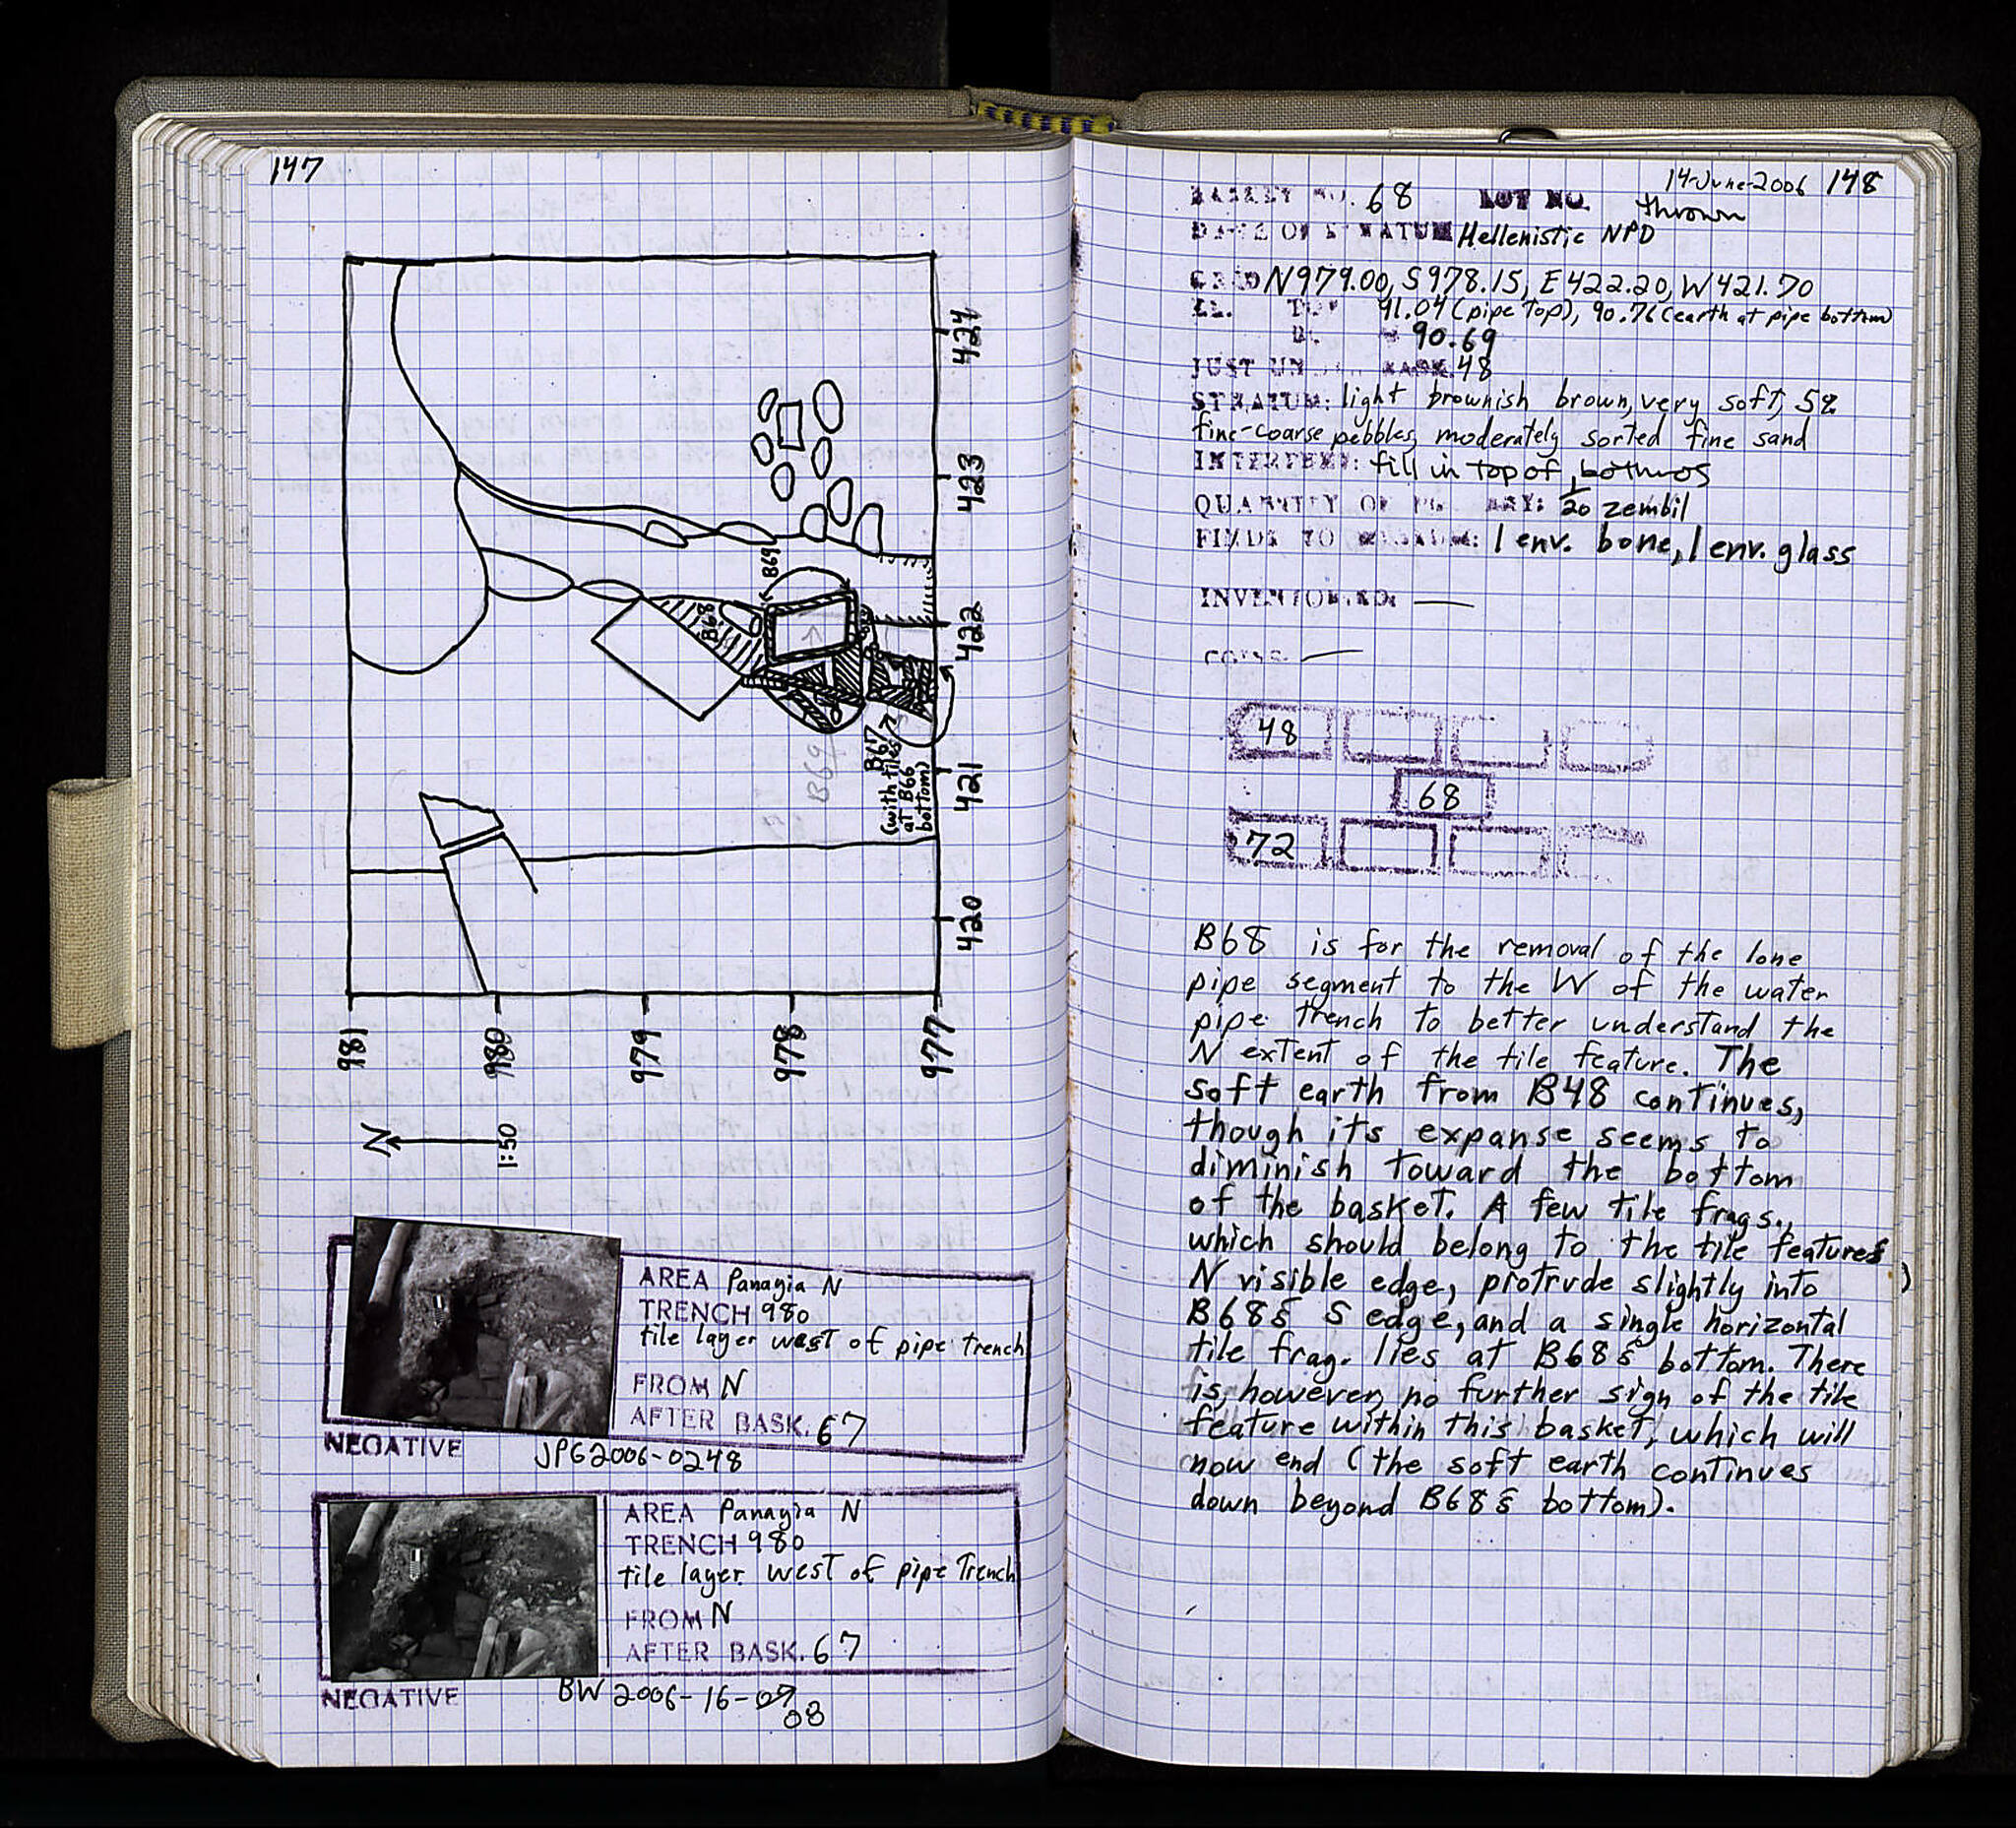 147
424
423
422
421
420
B69
B68
B67
(with tiles
at B66
bottom)
B69
981
980
979
978
977
N
1:50
AREA Panagia N
TRENCH 980
tile layer west of pipe trench
FROM N
AFTER BASK. 67
NEGATIVE JPG2006-0248
AREA Panagia N
TRENCH 980
tile layer west of pipe Trench
FROM N
AFTER BASK. 67
NEGATIVE BW 2006-16-07
08
14-June-2006 148
BASKET NO. 68 LOT NO. thrown
DATE OF STRATUM Hellenistic NPD
GRID N979.00, S978.15, E422.20, W421.70
EL. TOP 91.04 (pipe top), 90.76 (earth at pipe bottom)
90.69
JUST UNDER BASK. 48
STRATUM: light brownish brown, very soft, 5%
fine-coarse pebbles, moderately sorted fine sand
INTERPRET: fill in top of bothros
QUANTITY OF POTTERY: 1/20 zembil
FINDS TO MUSEUM: 1 env. bone, 1 env. glass
INVENTORIED: —
COINS: —
48
68
72
B68 is for the removal of the lone
pipe segment to the W of the water
pipe trench to better understand the
N extent of the tile feature. The
soft earth from B48 continues,
though its expanse seems to
diminish toward the bottom
of the basket. A few tile frags.,
which should belong to the tile feature's
N visible edge, protrude slightly into
B68's S edge, and a single horizontal
tile frag. lies at B68's bottom. There
is, however, no further sign of the tile
feature within this basket, which will
now end (the soft earth continues
down beyond B68's bottom).